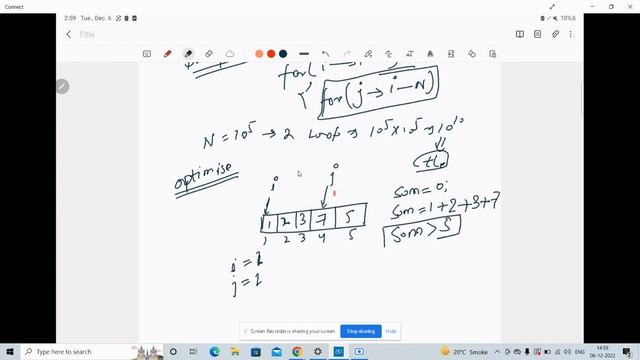 Connect
2:59 Tue, Dec. 6
10%
Title
for(i→
for(j→i-N)
N=10⁵→2 Loop→10⁵×10⁵→10¹⁰
tle
optimise
i j
sum=0;
sum=1+2+3+7
1 2 3 7 5
sum>S
1 2 3 4 5
i=1
j=1
Screen Recorder is sharing your screen.
Stop sharing
Hide
Type here to search
20°C Smoke
ENG
14:59
06-12-2022